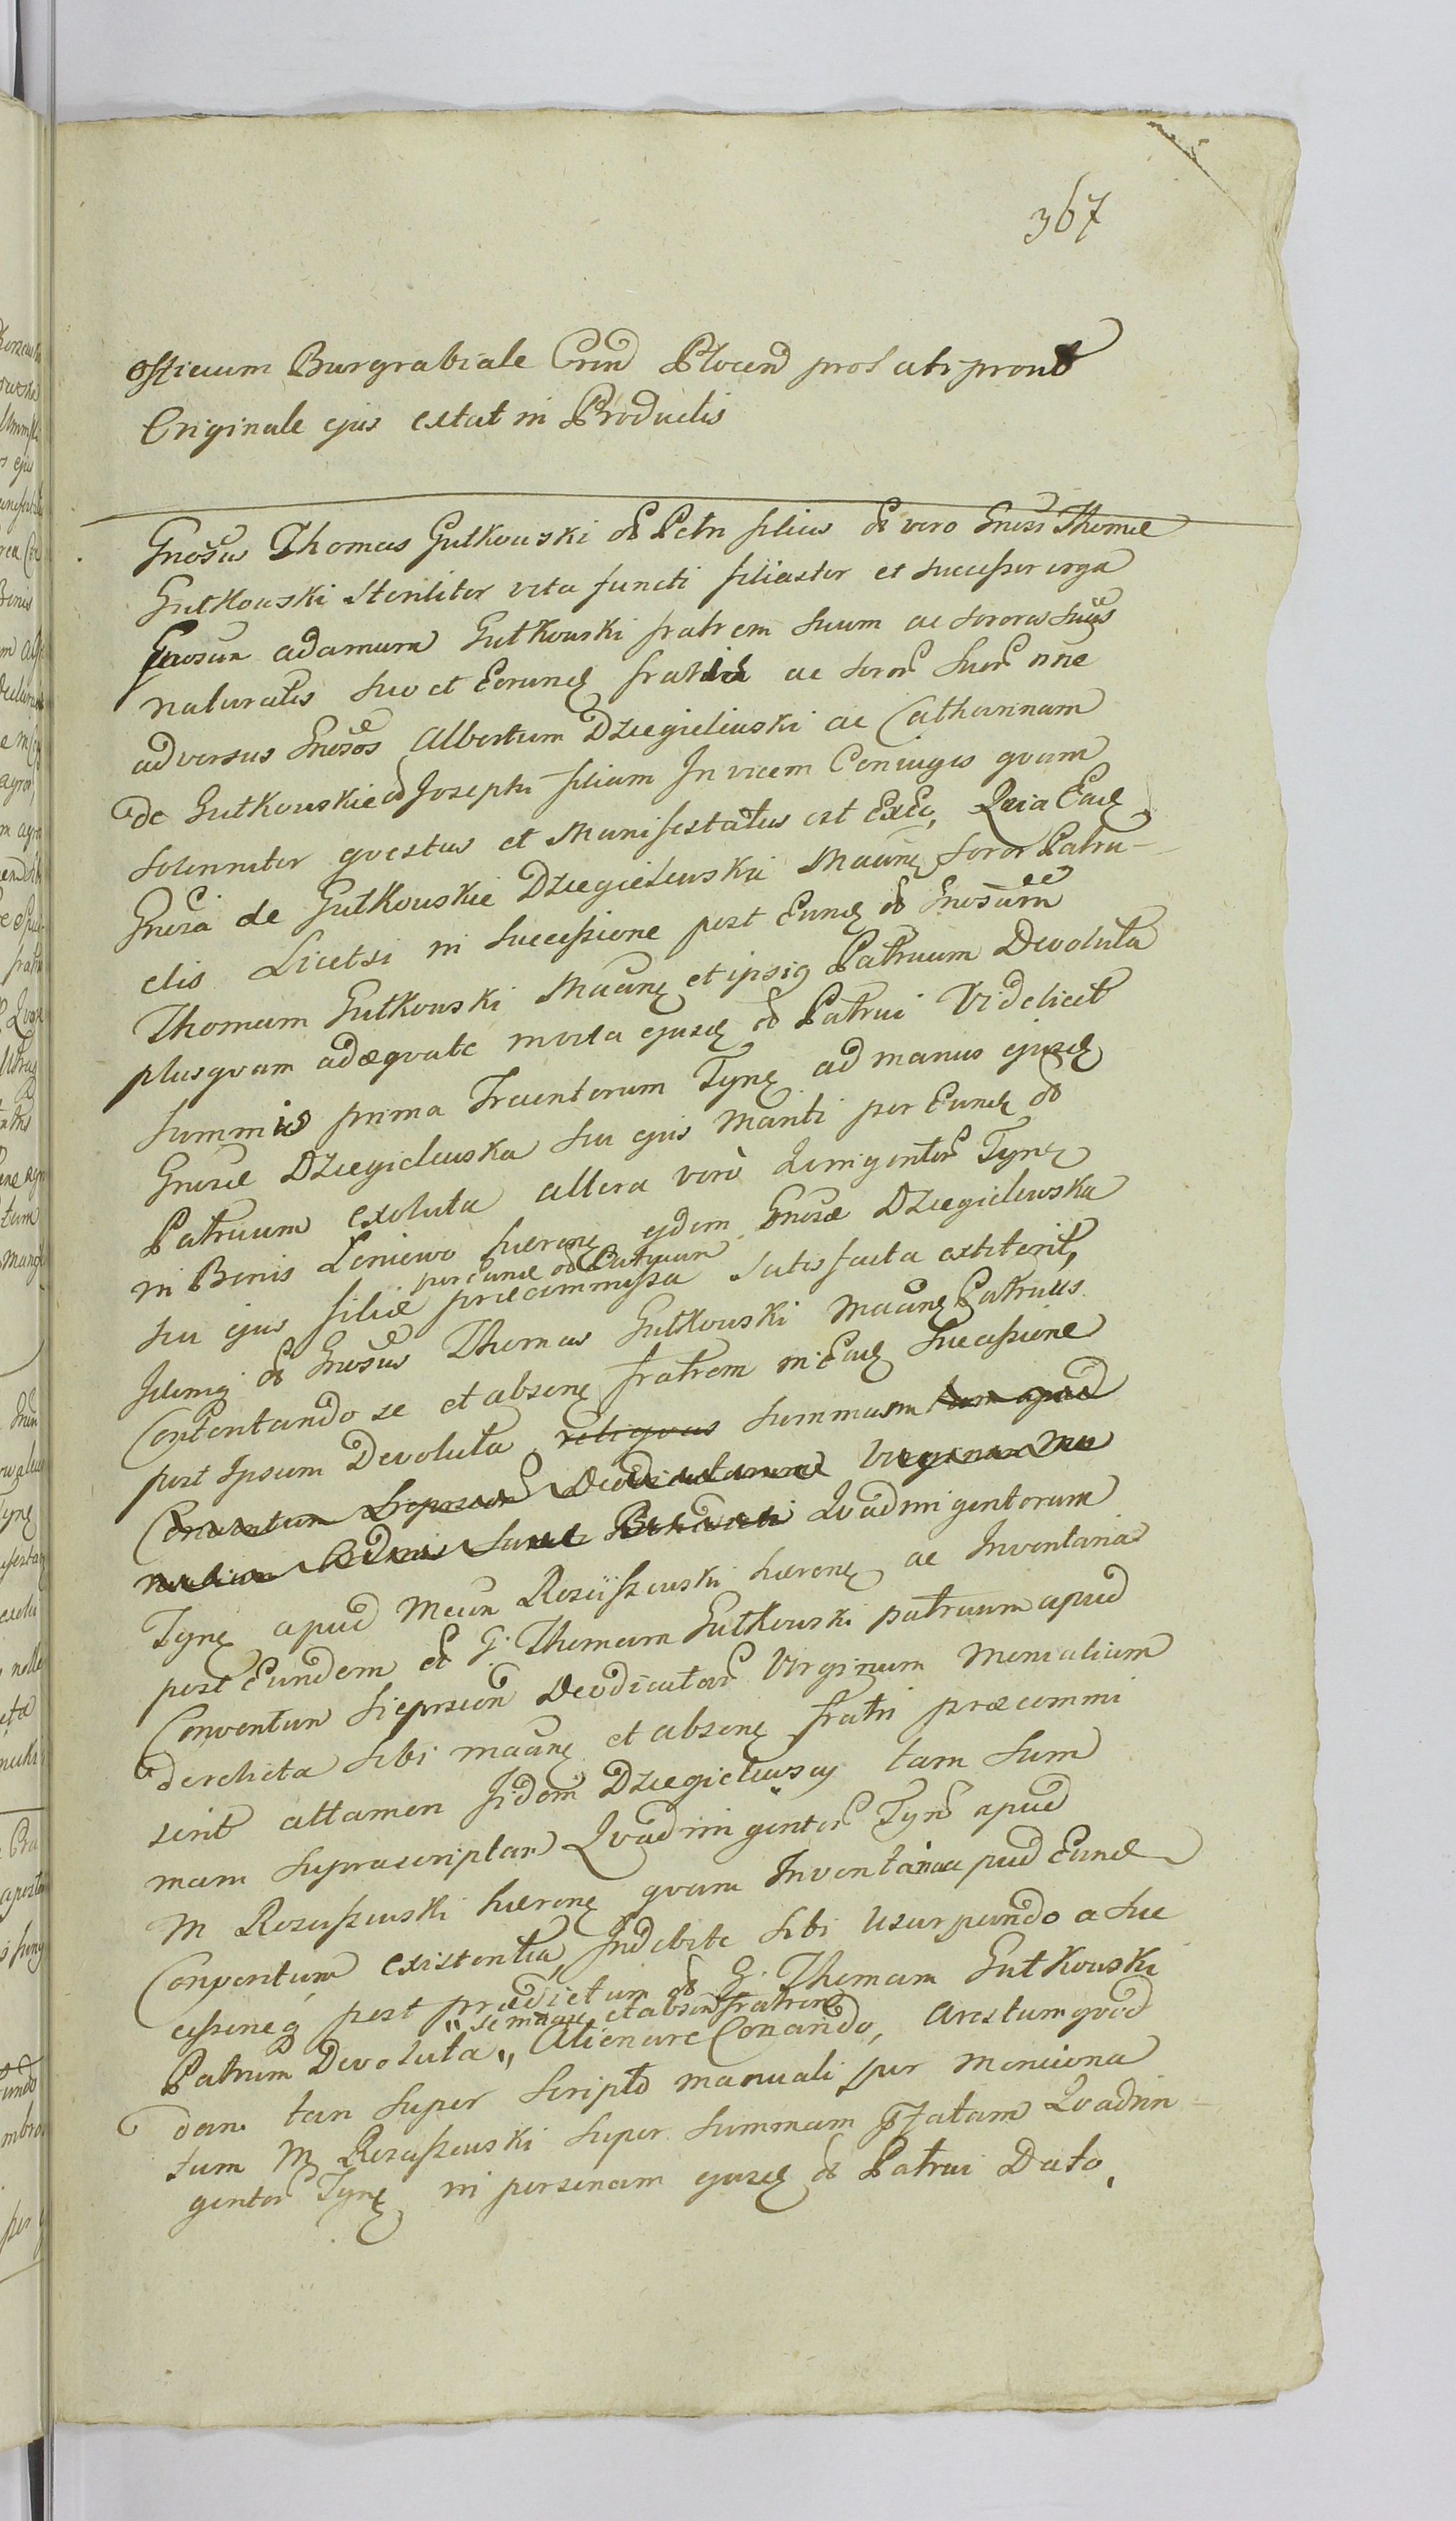 367
Officium Burgrabiale Cren Plocen pros ati prout
Originale ejus extat in Productis
Gnosus Thomas Gutkowski od Petri filius od vero Gnosi Thomæ
Gutkowski steriliter vita functi filiaster et successor erga
Gnosun adamum Gutkowski fratrem suum ac sorores suas
naturales suo et Eorund fratris ac soror suor nne
adversus Gnosos Albertum Dziegielewski ac Catharinam
de Gutkowskie od Josephi filiam Invicem Coniuges quam
solenniter questus et Manifestatus est Exeo, Quia Ead
Gnosa de Gutkowskie Dziegielewska Maane soror Patru-
elis Licetsi in successione post Eund od Gnosum
Thomam Gutkowski Maane et ipsig Patruum Devoluta
plusquam adæquate morta ejusd od Patrui Videlicet
summis prima Trecentorum Tyn ad manus ejusd
Gnosæ Dziegielewska seu ejus Mariti per Eund od
Patruum exoluta altera vero Quingentor Tyn
in Bonis Leniewo hæren ejdem Gnosæ Dziegielewska
per Eund od Patruum
seu ejus filiæ præcommissa satisfacta extiterit,
Idemq od Gnosus Thomas Gutkowski Maane Patruus
Contentando se et absen fratrem in Ead Successione
post Ipsum Devoluta reliquas summam tam apud
Conventum Sieprscen Deodicatarum Virginum Mo
Quadringentorum
Tyn apud Mcun Rosciszewski hæren ac Inventaria
post Eundem od G. Thomam Gutkowski patruum apud
Conventun Sieprscen Deodicatar Virginum Monialium
derelicta sibi maane et absen fratri præcommi
serit attamen Jidem Dziegielewscy tam sum
mam suprascriptan Quadringentor Tyn apud
M Rosciszewski hæren quam Inventaria apud Eund
Conventum existentia Indebite sibi usurpando a suc
cessioneq post prædictum od G. Thomam Gutkowski
se maane et absen fratrem
Patruum Devoluta Alienare Conando, Arestum quod
dam tan super scripto manuali per Menciona
tum M Rosciszewski super summam Quadrin-
gentor Tyn in personam ejusd od Patrui Dato,